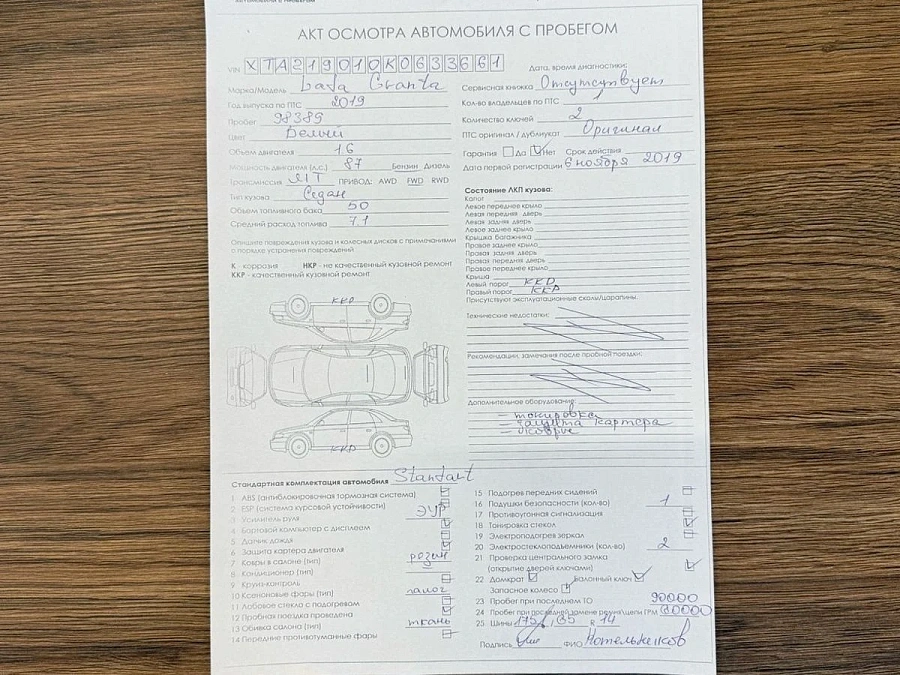 АКТ ОСМОТРА АВТОМОБИЛЯ С ПРОБЕГОМ
VIN XTA219010K0633661
Марка/Модель Lada Granta
Год выпуска по ПТС 2019
Пробег 98389
Цвет Белый
Объем двигателя 1.6
Мощность двигателя (л.с.) 87 Бензин Дизель
Трансмиссия МТ ПРИВОД: AWD FWD RWD
Тип кузова Седан
Объем топливного бака 50
Средний расход топлива 7.1
Опишите повреждения кузова и колесных дисков с примечаниями
о порядке устранения повреждений
К - коррозия НКР - не качественный кузовной ремонт
ККР - качественный кузовной ремонт
ККР
ККР
Дата, время диагностики:
Сервисная книжка Отсутствует
Кол-во владельцев по ПТС 1
Количество ключей 2
ПТС оригинал / дубликат Оригинал
Гарантия Да Нет Срок действия
Дата первой регистрации 6 ноября 2019
Состояние ЛКП кузова:
Капот
Левое переднее крыло
Левая передняя дверь
Левая задняя дверь
Левое заднее крыло
Крышка багажника
Правое заднее крыло
Правая задняя дверь
Правая передняя дверь
Правое переднее крыло
Крыша
Левый порог ККР
Правый порог ККР
Присутствуют эксплуатационные сколы/царапины.
Технические недостатки:
Рекомендации, замечания после пробной поездки:
Дополнительное оборудование:
— тонировка
— защита картера
— коврик
Стандартная комплектация автомобиля Standart
1 ABS (антиблокировочная тормозная система)
2 ESP (система курсовой устойчивости)
3 Усилитель руля ЭУР
4 Бортовой компьютер с дисплеем
5 Датчик дождя
6 Защита картера двигателя
7 Ковры в салоне (тип) резин
8 Кондиционер (тип)
9 Круиз-контроль
10 Ксеноновые фары (тип) галог
11 Лобовое стекло с подогревом
12 Пробная поездка проведена
13 Обивка салона (тип) ткань
14 Передние противотуманные фары
15 Подогрев передних сидений
16 Подушки безопасности (кол-во) 1
17 Противоугонная сигнализация
18 Тонировка стекол
19 Электроподогрев зеркал
20 Электростеклоподъемники (кол-во) 2
21 Проверка центрального замка
(открытие дверей ключами)
22 Домкрат Балонный ключ
Запасное колесо
23 Пробег при последнем ТО 90000
24 Пробег при последней замене ремня/цепи ГРМ 60000
25 Шины 175 / 65 R 14
Подпись ФИО Котельников